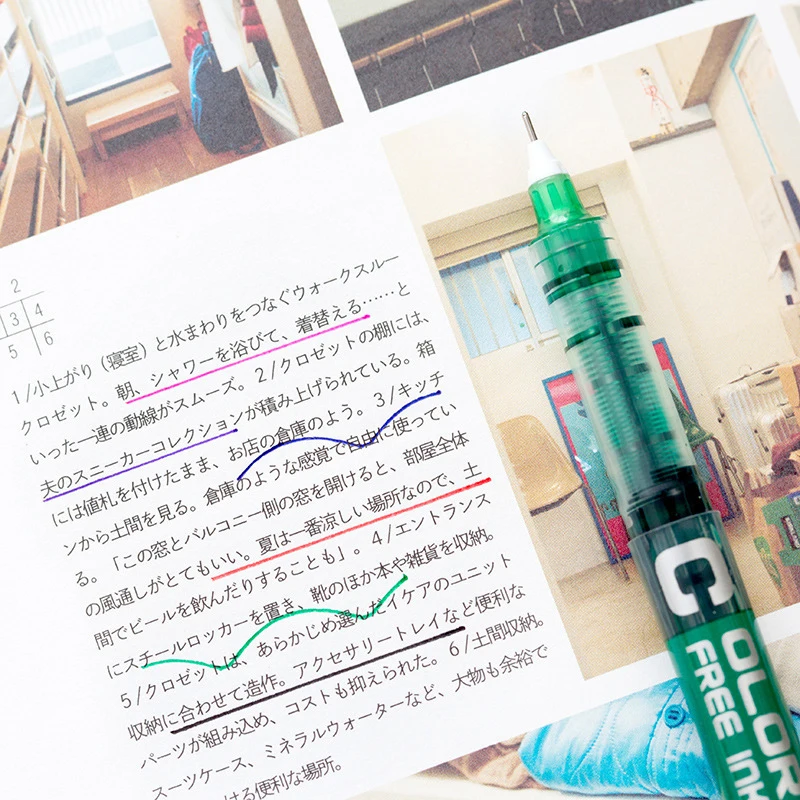 2
3 4
5 6
1/小上がり(寝室)と水まわりをつなぐウォークスルー
クロゼット。朝、シャワーを浴びて、着替える……と
いった一連の動線がスムーズ。2/クロゼットの棚には、
夫のスニーカーコレクションが積み上げられている。箱
には値札を付けたまま、お店の倉庫のよう。3/キッチ
ンから土間を見る。倉庫のような感覚で自由に使ってい
る。「この窓とバルコニー側の窓を開けると、部屋全体
の風通しがとてもいい。夏は一番涼しい場所なので、土
間でビールを飲んだりすることも」。4/エントランス
にスチールロッカーを置き、靴のほか本や雑貨を収納。
5/クロゼットは、あらかじめ選んだイケアのユニット
収納に合わせて造作。アクセサリートレイなど便利な
パーツが組み込め、コストも抑えられた。6/土間収納。
スーツケース、ミネラルウォーターなど、大物も余裕で
ける便利な場所。
COLOR
FREE INK